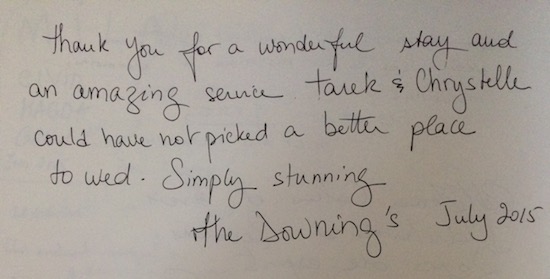 Thank you for a wonderful stay and
an amazing service Tarek & Chrystelle
could have not picked a better place
to wed. Simply stunning
the Downing's July 2015